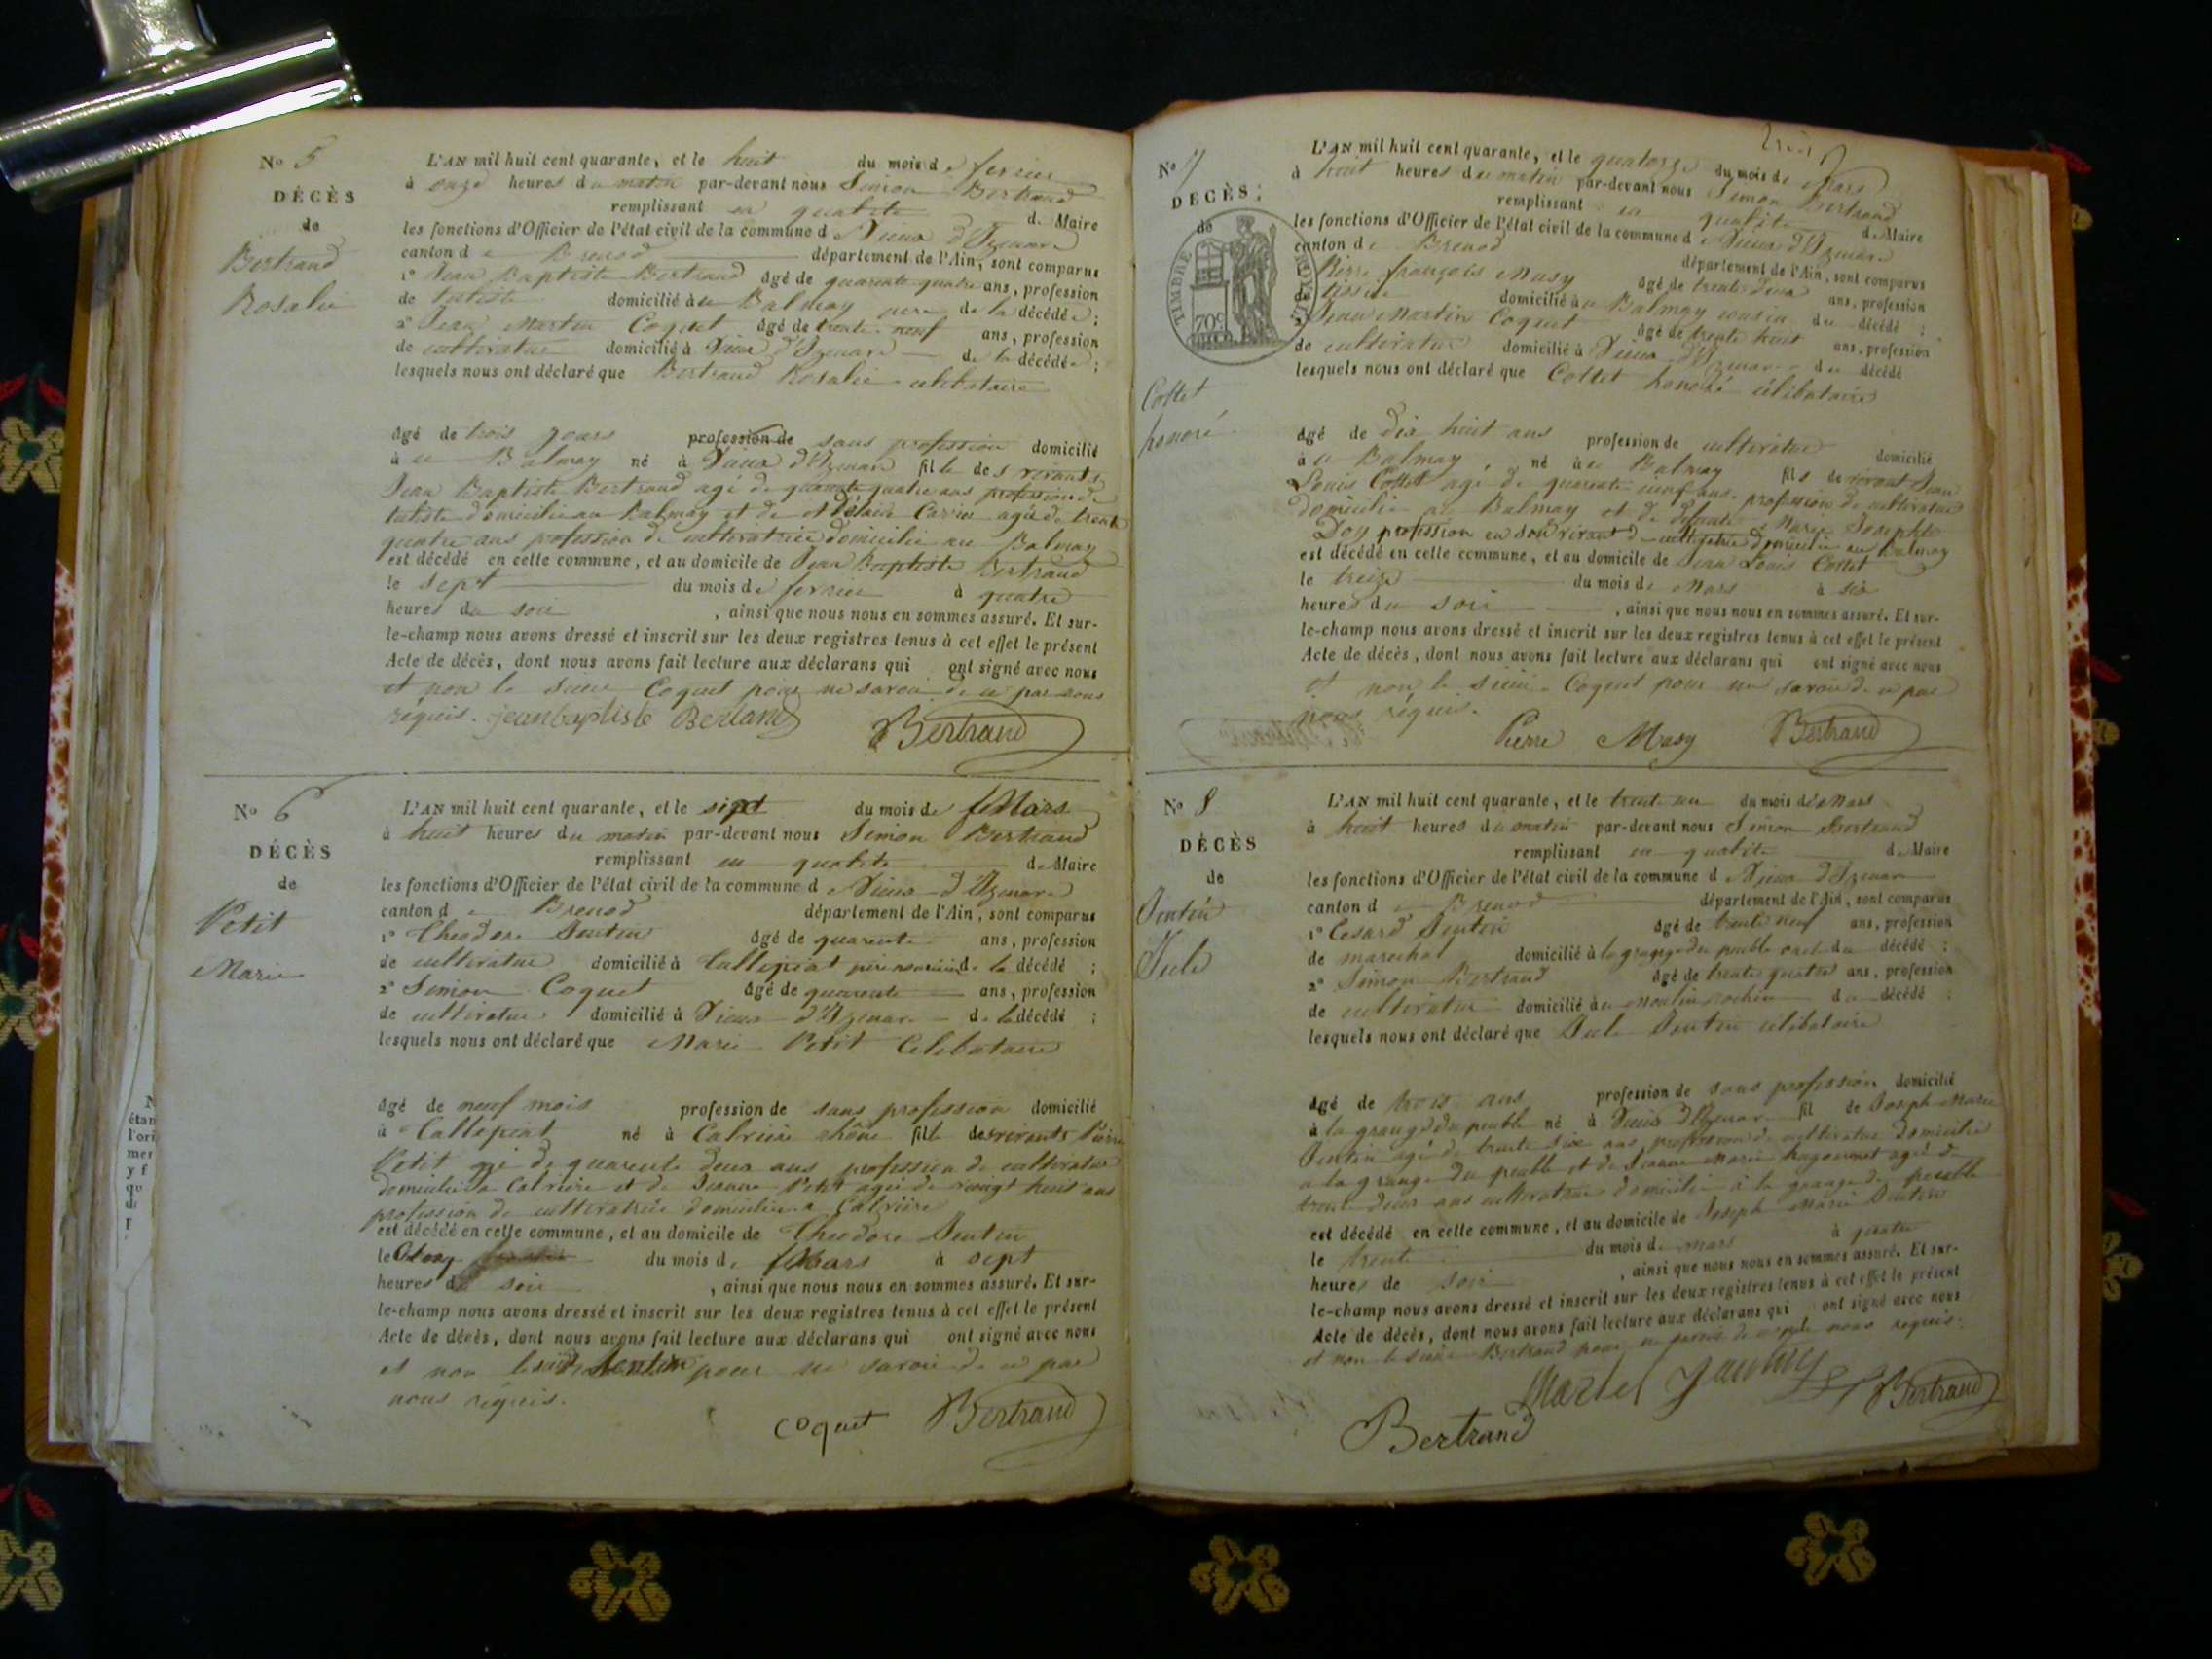 No 5
DÉCÈS
de
Bertrand
Rosalie
L'AN mil huit cent quarante, et le huit du mois de fevrier
à onze heures du matin par-devant nous Simon Bertrand
remplissant en qualité de Maire
les fonctions d'Officier de l'état civil de la commune d Vieux d'Izenave
canton de Brenod département de l'Ain, sont comparus
1° Jean Baptiste Bertrand âgé de quarante quatre ans, profession
de domicilié à au Balmay père de la décédée;
2° Jean Martin Coquet âgé de trente neuf ans, profession
de cultivateur domicilié à Vieux d'Izenave de la décédée;
lesquels nous ont déclaré que Bertrand Rosalie célibataire
âgé de trois jours profession de sans profession domicilié
à au Balmay né à Vieux d'Izenave fille des vivants
Jean Baptiste Bertrand agé de quarante quatre ans profession de
domicilié au Balmay et de agée de trente
quatre ans profession de cultivatrice domiciliée au Balmay
est décédé en cette commune, et au domicile de Jean Baptiste Bertrand
le sept du mois de fevrier à quatre
heures du soir, ainsi que nous nous en sommes assuré. Et sur-
le-champ nous avons dressé et inscrit sur les deux registres tenus à cet effet le présent
Acte de décès, dont nous avons fait lecture aux déclarans qui ont signé avec nous
et non le sieur Coquet pour ne savoir de ce par nous
requis. jeanbaptiste Bertand Bertrand
No 6
DÉCÈS
de
Petit
Marie
L'AN mil huit cent quarante, et le sept du mois de Mars
à huit heures du matin par-devant nous Simon Bertrand
remplissant en qualité de Maire
les fonctions d'Officier de l'état civil de la commune d Vieux d'Izenave
canton de Brenod département de l'Ain, sont comparus
1° Theodore âgé de quarante ans, profession
de cultivateur domicilié à de la décédé;
2° Simon Coquet âgé de quarante ans, profession
de cultivateur domicilié à Vieux d'Izenave de la décédé;
lesquels nous ont déclaré que Marie Petit Celibataire
âgé de neuf mois profession de sans profession domicilié
à né à fille des vivants Pierre
Petit agé de quarente deux ans profession de cultivateur
domicilié à et de Jeanne Petit agée de vingt huit ans
profession de cultivatrice domiciliée à
est décédé en cette commune, et au domicile de Theodore
le du mois de Mars à sept
heures du soir, ainsi que nous nous en sommes assuré. Et sur-
le-champ nous avons dressé et inscrit sur les deux registres tenus à cet effet le présent
Acte de décès, dont nous avons fait lecture aux déclarans qui ont signé avec nous
et non le pour ne savoir de ce par
nous requis.
coquet Bertrand
No 7
DÉCÈS;
de
TIMBRE ROYAL
70c
Cottet
honoré
L'AN mil huit cent quarante, et le quatorze du mois de Mars
à huit heures du matin par-devant nous Simon Bertrand
remplissant en qualité de Maire
les fonctions d'Officier de l'état civil de la commune d Vieux d'Izenave
canton de Brenod département de l'Ain, sont comparus
Pierre françois Masy âgé de trente deux ans, profession
de domicilié à au Balmay cousin du décédé;
2° Jean Martin Coquet âgé de trente huit ans, profession
de cultivateur domicilié à Vieux d'Izenave du décédé
lesquels nous ont déclaré que Cottet honoré célibataire
âgé de dix huit ans profession de cultivateur domicilié
à au Balmay, né à au Balmay fils de vivant Jean
Louis Cottet agé de quarante neuf ans profession de cultivateur
domicilié au Balmay et de défunte Marie Josephte
Doy profession en son vivant de cultivatrice domiciliée au Balmay
est décédé en cette commune, et au domicile de Jean Louis Cottet
le treize du mois de Mars à six
heures du soir, ainsi que nous nous en sommes assuré. Et sur-
le-champ nous avons dressé et inscrit sur les deux registres tenus à cet effet le présent
Acte de décès, dont nous avons fait lecture aux déclarans qui ont signé avec nous
et non le sieur Coquet pour ne savoir de ce par
nous requis.
Pierre Masy Bertrand
No 8
DÉCÈS
de
Jule
L'AN mil huit cent quarante, et le trente un du mois de Mars
à huit heures du matin par-devant nous Simon Bertrand
remplissant en qualité de Maire
les fonctions d'Officier de l'état civil de la commune d Vieux d'Izenave
canton de Brenod département de l'Ain, sont comparus
1° Cesard âgé de trente neuf ans, profession
de marechal domicilié à la grange du peuble oncle du décédé;
2° Simon Bertrand âgé de trente quatre ans, profession
de cultivateur domicilié à au Moulin du décédé;
lesquels nous ont déclaré que Jule célibataire
âgé de trois ans profession de sans profession domicilié
à la grange du peuble né à Vieux d'Izenave fil de Joseph Marie
agé de trente six ans profession de cultivateur domicilié
a la grange du peuble et de Jeanne Marie agée de
trente deux ans cultivatrice domiciliée à la grange du peuble
est décédé en cette commune, et au domicile de Joseph Marie
le trente du mois de mars à quatre
heures de soir, ainsi que nous nous en sommes assuré. Et sur-
le-champ nous avons dressé et inscrit sur les deux registres tenus à cet effet le présent
Acte de décès, dont nous avons fait lecture aux déclarans qui ont signé avec nous
et non le sieur Bertrand pour ne savoir de ce par nous requis.
Bertrand
Bertrand